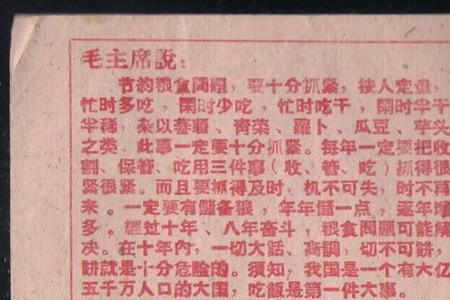 毛主席說：
节約粮食問題，要十分抓紧，按人定量，
忙时多吃，閑时少吃，忙时吃干，閑时半干
半稀，杂以蕃薯、青菜、蘿卜、瓜豆、芋头
之类。此事一定要十分抓紧。每年一定要把收
割、保管、吃用三件事（收、管、吃）抓得很
紧很紧。而且要抓得及时，机不可失，时不再
来。一定要有儲备粮，年年儲一点，逐年增
多。經过十年、八年奋斗，粮食問題可能解
决。在十年內，一切大話、高調，切不可講，
講就是十分危險的。须知，我国是一个有六亿
五千万人口的大国，吃飯是第一件大事。